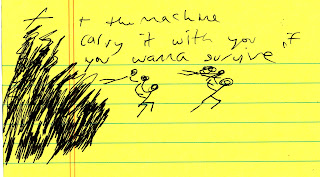 f + the machine
carry it with you if
you wanna survive